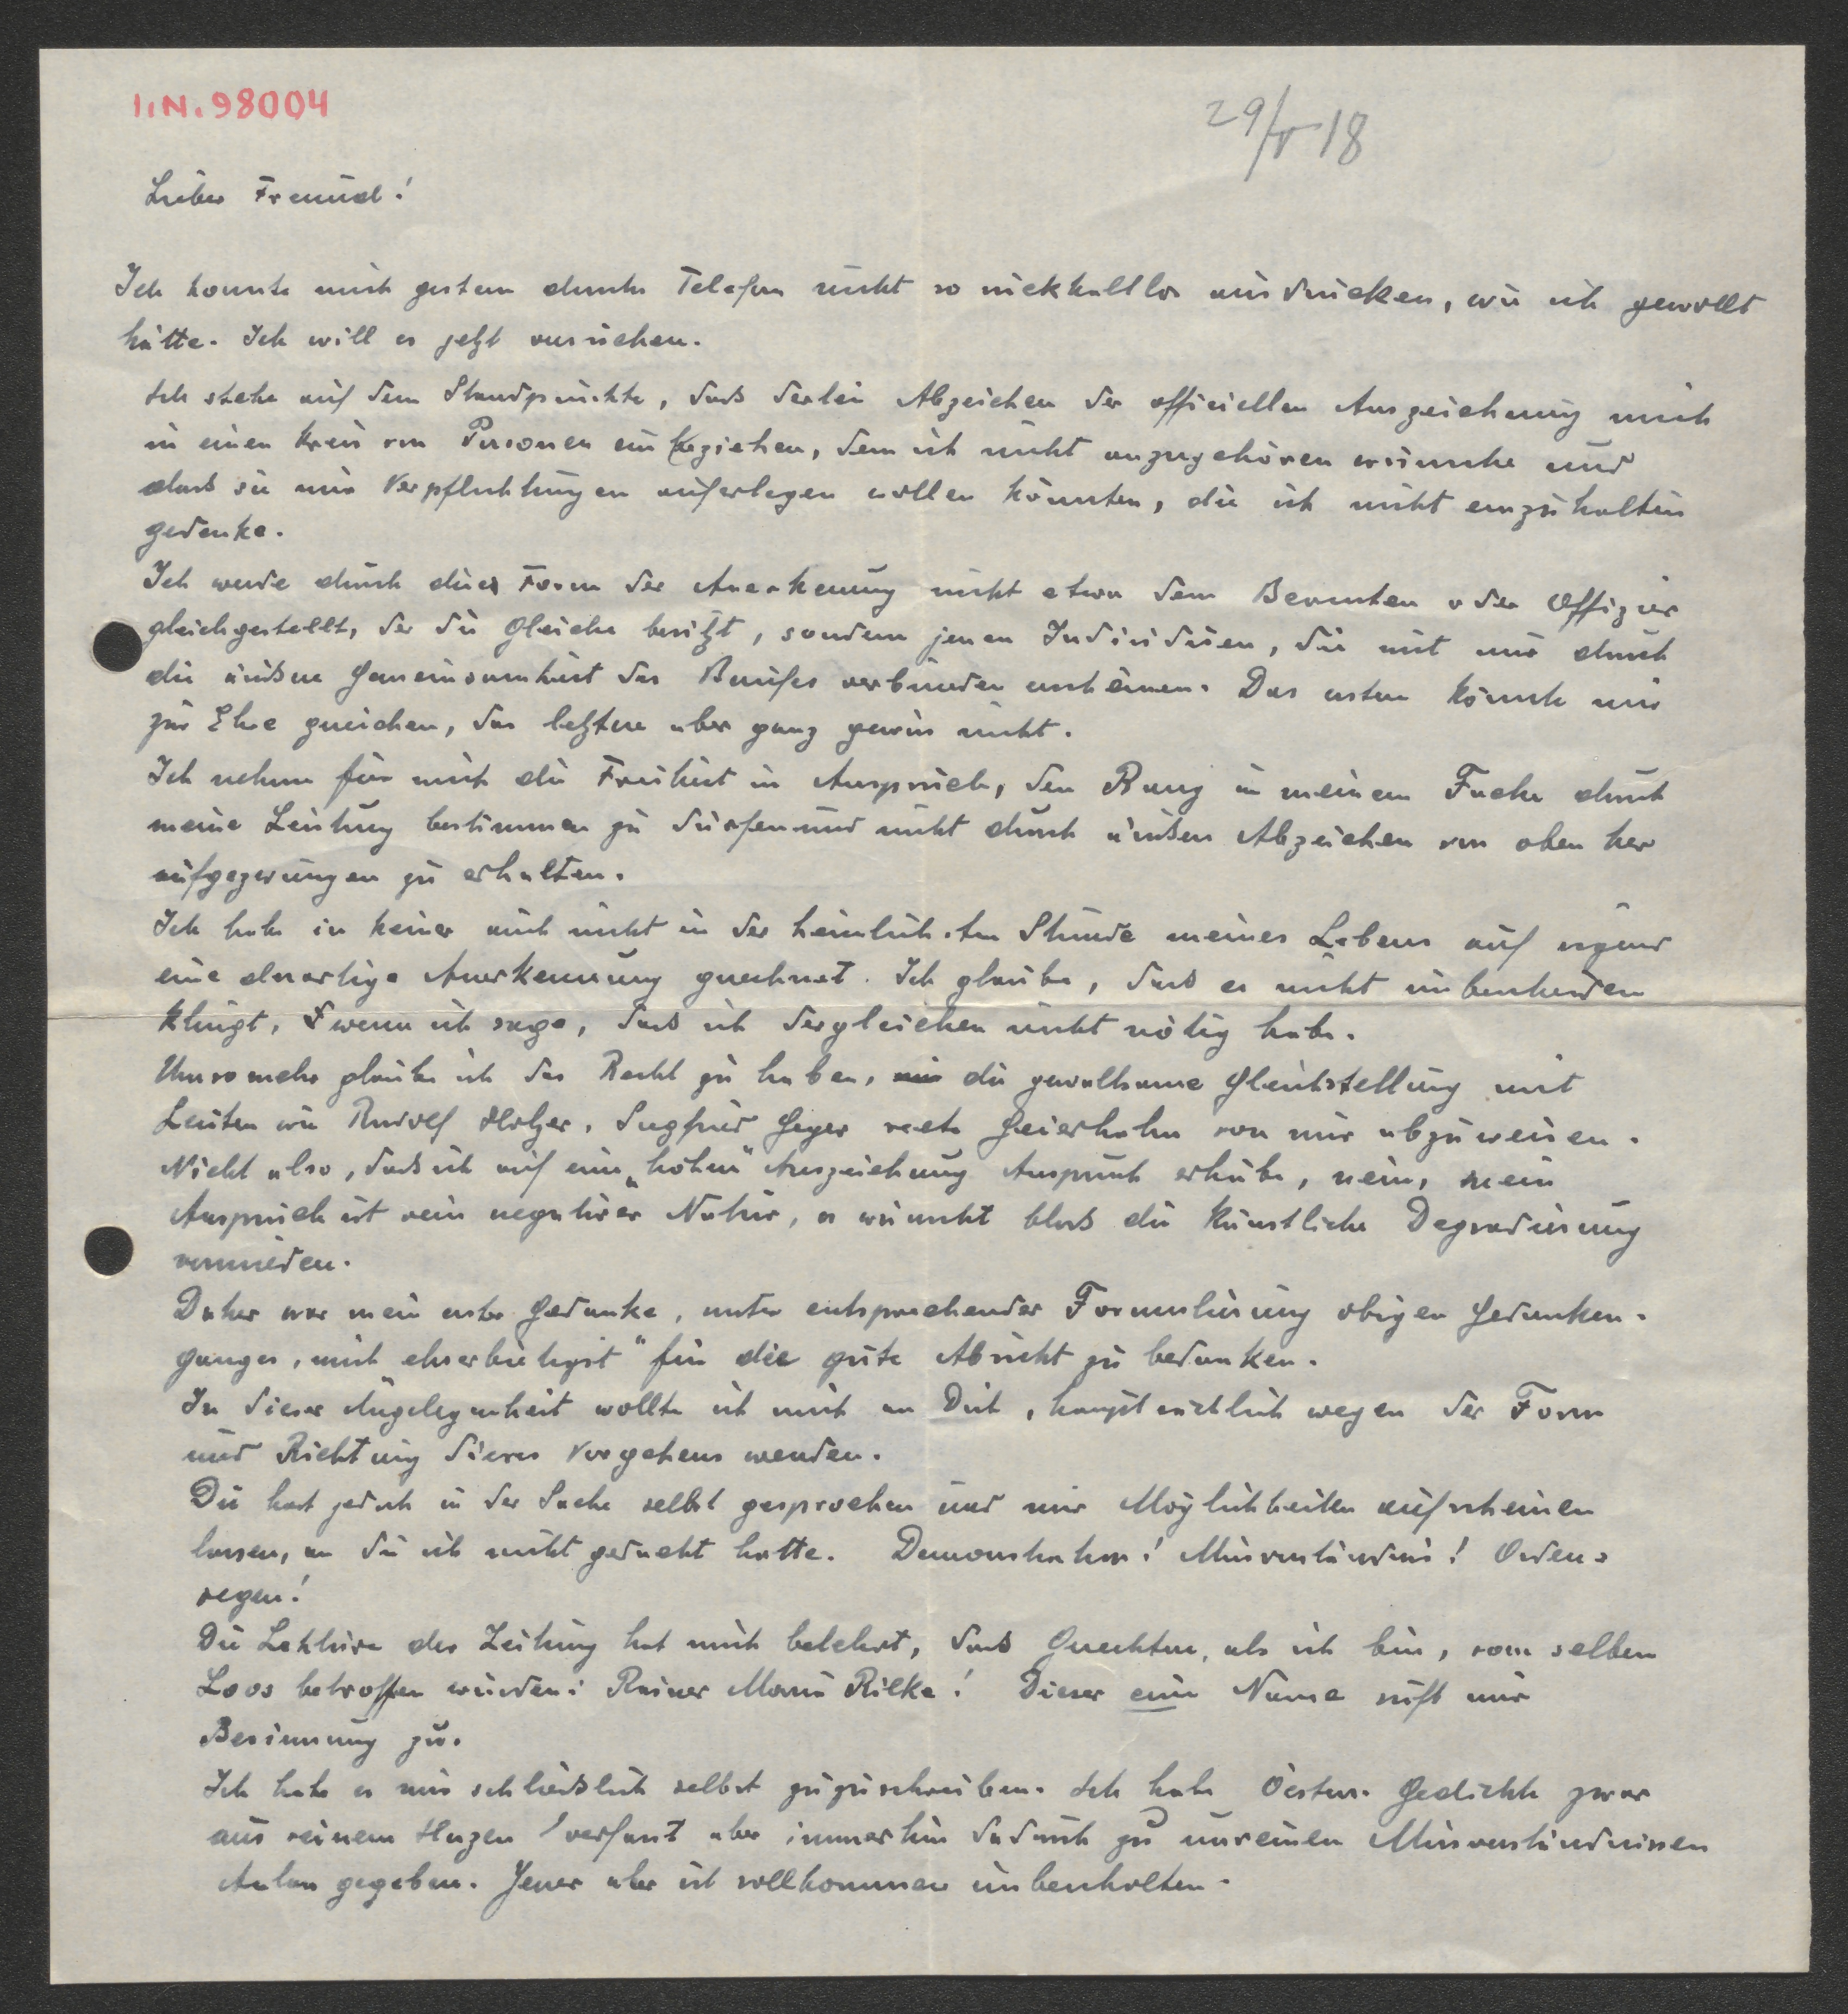 I.N. 98004
29/V 18
Lieber Freund!
Ich konnte mich gestern durchs Telefon nicht so rückhaltlos ausdrücken, wie ich gewollt
hätte. Ich will es jetzt versuchen.
Ich stehe auf dem Standpunkte, dass derlei Abzeichen der officiellen Auszeichnung mich
in einen Kreis von Personen einbeziehen, dem ich nicht anzugehören wünsche und
dass sie mir Verpflichtungen auferlegen wollen könnten, die ich nicht einzuhalten
gedenke.
Ich werde durch diese Form der Anerkennung nicht etwa dem Beamten oder Offizier
gleichgestellt, der die gleiche besitzt, sondern jenen Individuen, die mit mir durch
die äussere Gemeinsamkeit des Berufes verbunden erscheinen. Das erstere könnte mir
zur Ehre gereichen, das letztere aber ganz gewiss nicht.
Ich nehme für mich die Freiheit in Anspruch, den Rang in meinem Fache durch
meine Leistung bestimmen zu dürfen und nicht durch äussere Abzeichen von oben her
aufgezwungen zu erhalten.
Ich habe in keiner auch nicht in der heimlichsten Stunde meines Lebens auf irgend
eine derartige Anerkennung gerechnet. Ich glaube, dass es nicht unbescheiden
klingt, wenn ich sage, dass ich dergleichen nicht nötig habe.
Umsomehr glaube ich das Recht zu haben, die gewaltsame Gleichstellung mit
Leuten wie Rudolf Holzer, Siegfried Geyer recte Geierhahn von mir abzuweisen.
Nicht also, dass ich auf eine „höhere" Auszeichnung Anspruch erhübe, nein, mein
Anspruch ist rein negativer Natur, er wünscht bloss die künstliche Degradierung
vermieden.
Daher war mein erster Gedanke, unter entsprechender Formulierung obigen Gedanken-
ganges, mich „ehrerbietigst" für die gute Absicht zu bedanken.
In dieser Angelegenheit wollte ich mich an Dich, hauptsächlich wegen der Form
und Richtung dieses Vorgehens wenden.
Du hast jedoch in der Sache selbst gesprochen und mir Möglichkeiten aufscheinen
lassen, an die ich nicht gedacht hatte. Demonstration! Missverständnis! Ordens-
segen!
Die Lektüre der Zeitung hat mich belehrt, dass Gerechtere, als ich bin, vom selben
Loos betroffen wurden: Rainer Maria Rilke! Dieser eine Name ruft mir
Besinnung zu.
Ich habe es mir schliesslich selbst zuzuschreiben. Ich habe Österr. Gedichte zwar
aus reinem Herzen verfasst aber immerhin dadurch zu unreinen Missverständnissen
Anlass gegeben. Jener aber ist vollkommen unbescholten.